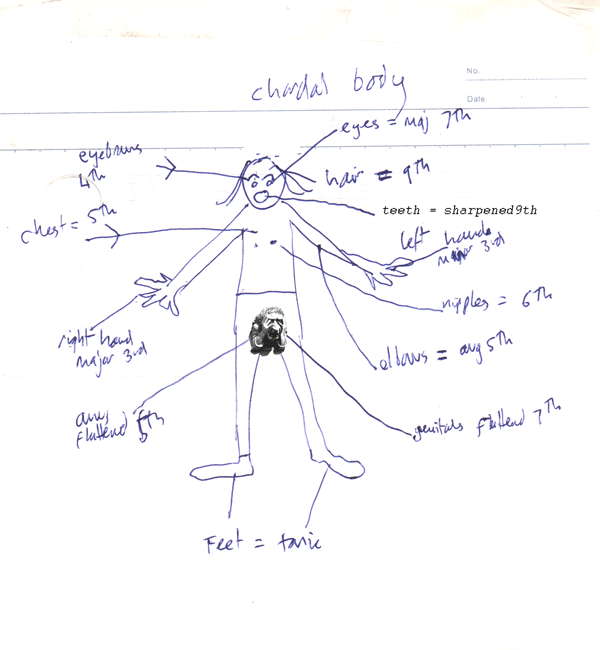 No.
chordal body
Date
eyes = maj 7th
eyebrows
4th
hair = 9th
teeth = sharpened9th
chest = 5th
left hand
major 3rd
nipples = 6th
right hand
major 3rd
elbows = aug 5th
anus
flattend 5th
genitals flattend 7th
Feet = tonic